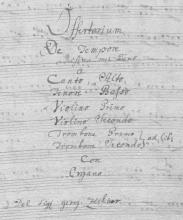 Offertorium
De Tempore
a
Canto Alto
Tenore Basso
Violino Primo
Violino Secondo
Trombone Primo
Trombone Secondo ad lib:
Con
Organo
Del Sig: Georg